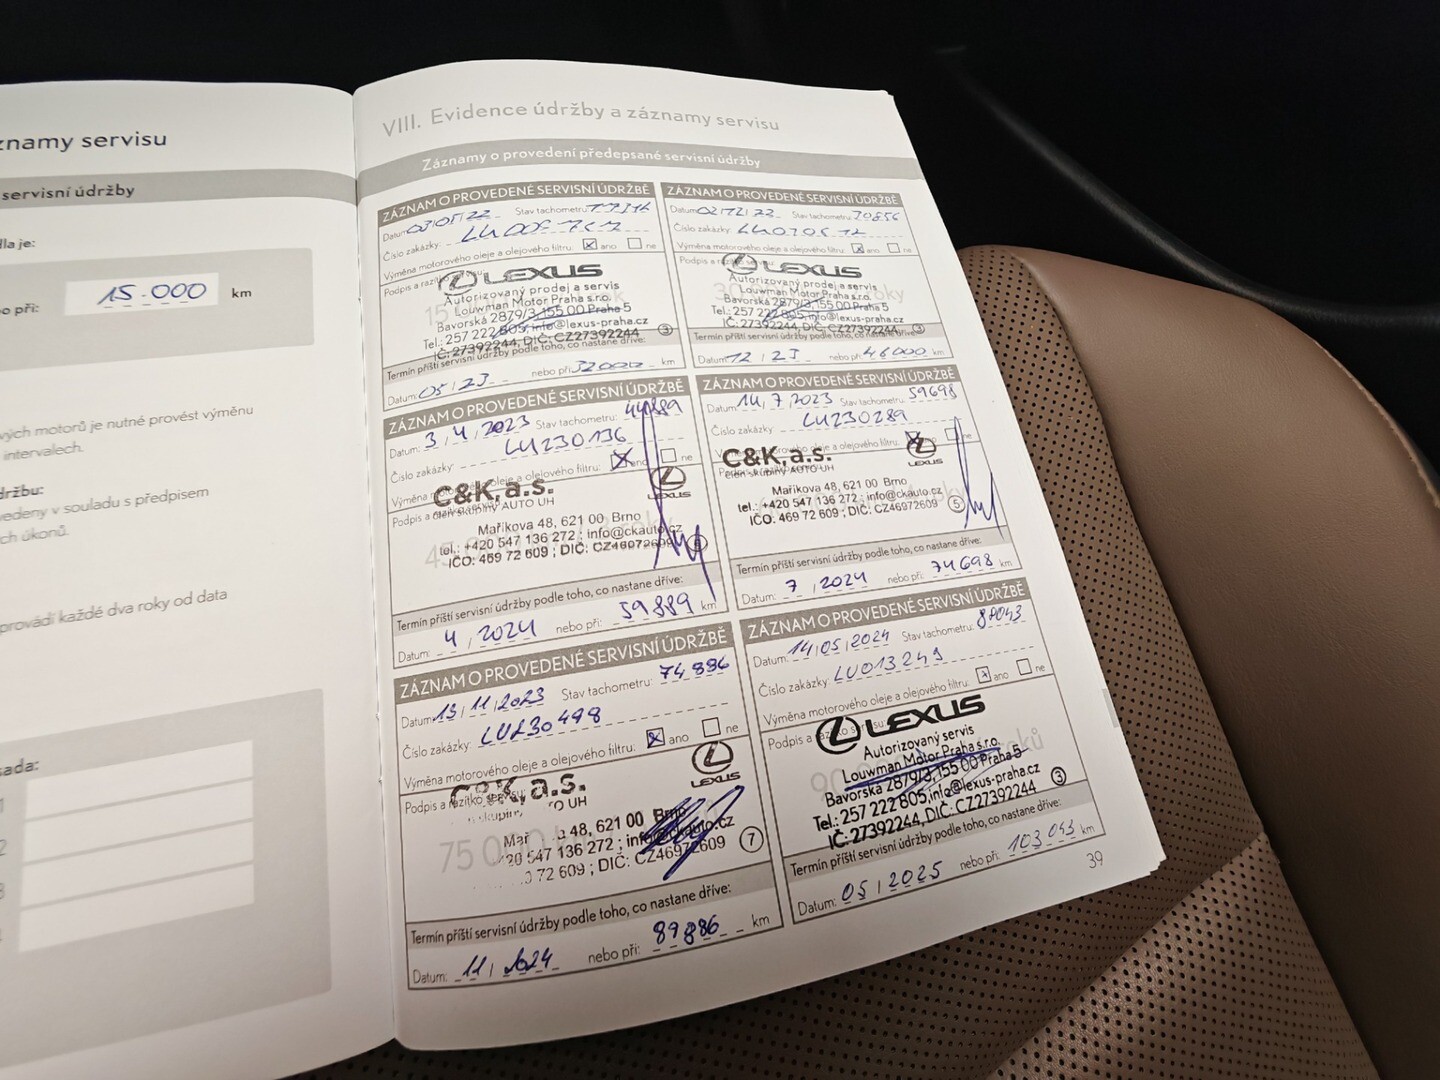 znamy servisu
servisní údržby
dla je:
o při: 15.000 km
vých motorů je nutné provést výměnu
intervalech.
držbu:
vedeny v souladu s předpisem
ch úkonů.
provádí každé dva roky od data
sada:
VIII. Evidence údržby a záznamy servisu
Záznamy o provedení předepsané servisní údržby
ZÁZNAM O PROVEDENÉ SERVISNÍ ÚDRŽBĚ
Datum: 03/05/22 Stav tachometru:
Číslo zakázky:
Výměna motorového oleje a olejového filtru: ano ne
Podpis a razítko servisu:
LEXUS
Autorizovaný prodej a servis
Louwman Motor Praha s.r.o.
Bavorská 2879/3, 155 00 Praha 5
Tel.: 257 222 805, info@lexus-praha.cz
IČ: 27392244, DIČ: CZ27392244 3
Termín příští servisní údržby podle toho, co nastane dříve:
Datum: 05/23 nebo při: 32000 km
ZÁZNAM O PROVEDENÉ SERVISNÍ ÚDRŽBĚ
Datum: 02/12/22 Stav tachometru: 30856
Číslo zakázky:
Výměna motorového oleje a olejového filtru: ano ne
Podpis a razítko servisu:
LEXUS
Autorizovaný prodej a servis
Louwman Motor Praha s.r.o.
Bavorská 2879/3, 155 00 Praha 5
Tel.: 257 222 805, info@lexus-praha.cz
IČ: 27392244, DIČ: CZ27392244 3
Termín příští servisní údržby podle toho, co nastane dříve:
Datum: 12/23 nebo při: 46000 km
ZÁZNAM O PROVEDENÉ SERVISNÍ ÚDRŽBĚ
Datum: 3/4/2023 Stav tachometru: 44889
Číslo zakázky: LU230136
Výměna motorového oleje a olejového filtru: ano ne
Podpis a razítko servisu:
C&K, a.s.
člen skupiny AUTO UH
LEXUS
Maříkova 48, 621 00 Brno
tel.: +420 547 136 272 ; info@ckauto.cz
IČO: 469 72 609 ; DIČ: CZ46972609
Termín příští servisní údržby podle toho, co nastane dříve:
Datum: 4/2024 nebo při: 59889 km
ZÁZNAM O PROVEDENÉ SERVISNÍ ÚDRŽBĚ
Datum: 14/7/2023 Stav tachometru: 59698
Číslo zakázky: LU230289
C&K, a.s.
člen skupiny AUTO UH
LEXUS
Maříkova 48, 621 00 Brno
tel.: +420 547 136 272 ; info@ckauto.cz
IČO: 469 72 609 ; DIČ: CZ46972609 5
Termín příští servisní údržby podle toho, co nastane dříve:
Datum: 7/2024 nebo při: 74698 km
ZÁZNAM O PROVEDENÉ SERVISNÍ ÚDRŽBĚ
Datum: 13/11/2023 Stav tachometru: 74886
Číslo zakázky: LU230498
Výměna motorového oleje a olejového filtru: ano ne
Podpis a razítko servisu:
C&K, a.s.
LEXUS
75 000
48, 621 00 Brno
20 547 136 272 ; info@ckauto.cz
72 609 ; DIČ: CZ46972609 7
Termín příští servisní údržby podle toho, co nastane dříve:
Datum: 11/2024 nebo při: 89886 km
ZÁZNAM O PROVEDENÉ SERVISNÍ ÚDRŽBĚ
Datum: 14/05/2024 Stav tachometru: 88043
Číslo zakázky: LU013249
Výměna motorového oleje a olejového filtru: ano ne
Podpis a razítko servisu:
LEXUS
Autorizovaný servis
Louwman Motor Praha s.r.o.
Bavorská 2879/3, 155 00 Praha 5
Tel.: 257 222 805, info@lexus-praha.cz
IČ: 27392244, DIČ: CZ27392244 3
Termín příští servisní údržby podle toho, co nastane dříve:
Datum: 05/2025 nebo při: 103 043 km
39